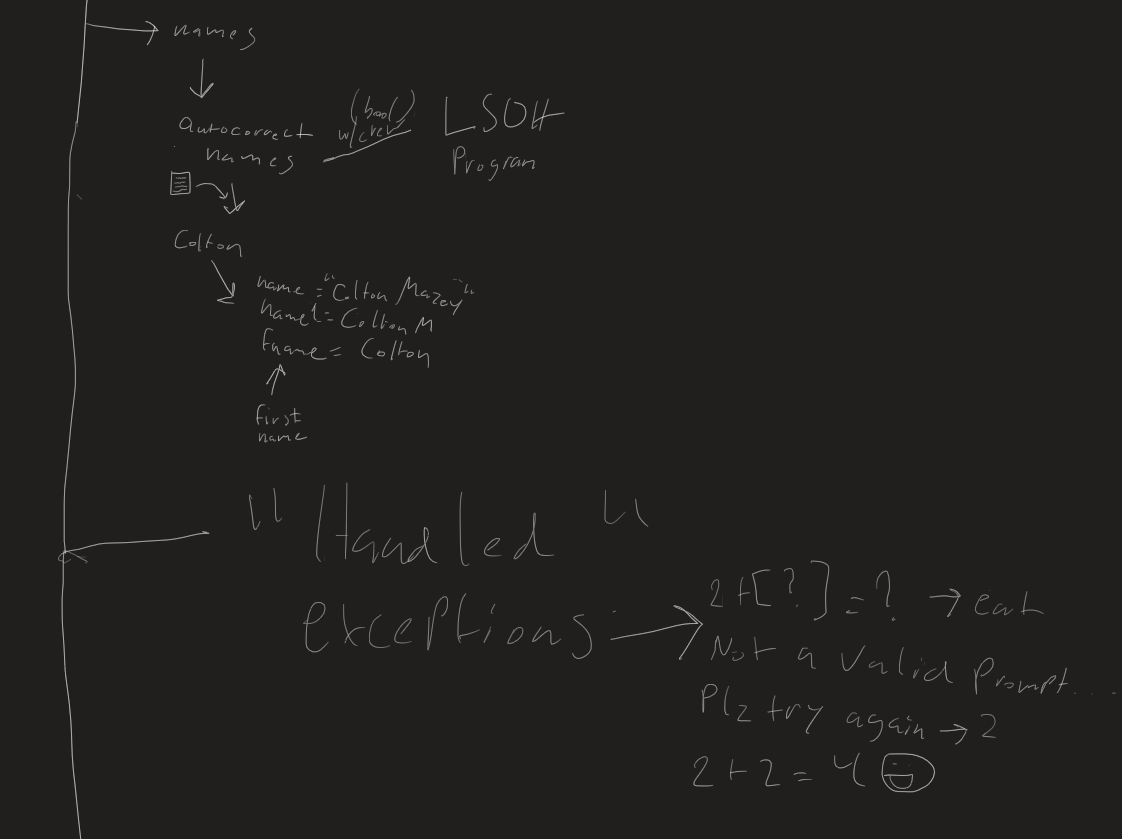 names
autocorrect
names
(bool)
LSOH
Program
Colton
name = "Colton Mazey"
name1 = Colton M
fname = Colton
first
name
"Handled"
exceptions
2+[?]=? → eat
Not a valid prompt....
Plz try again → 2
2+2=4